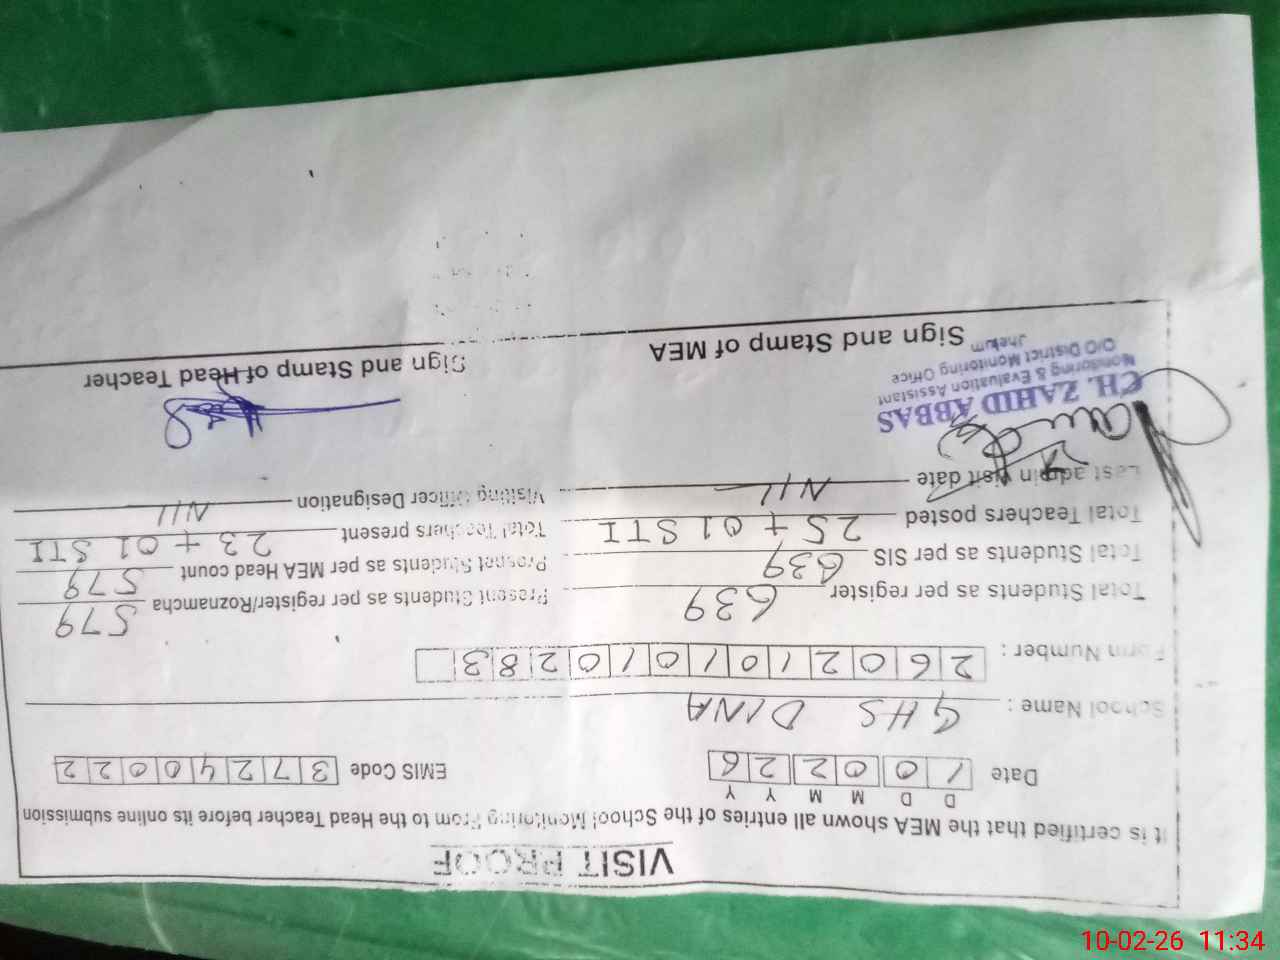 VISIT PROOF
It is certified that the MEA shown all entries of the School Monitoring From to the Head Teacher before its online submission
D D M M Y Y
Date 1 0 0 2 2 6 EMIS Code 3 7 2 4 0 0 2 2
School Name : GHS DINA
Form Number : 2 6 0 2 1 0 1 0 1 0 2 8 3
Total Students as per register 639 Present Students as per register/Roznamcha 579
Total Students as per SIS 639 Presnet Students as per MEA Head count 579
Total Teachers posted 25 + 01 STI Total Teachers present 23 + 01 STI
Last admin visit date NIL Visiting Officer Designation NIL
CH. ZAHID ABBAS
Monitoring & Evaluation Assistant
O/O District Monitoring Office
Jhelum
Sign and Stamp of MEA Sign and Stamp of Head Teacher
10-02-26 11:34